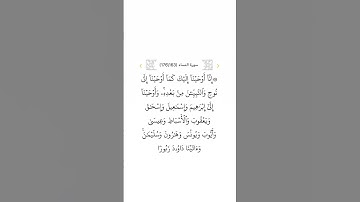 سورة النساء (176/163)
۞إِنَّآ أَوۡحَيۡنَآ إِلَيۡكَ كَمَآ أَوۡحَيۡنَآ إِلَىٰ
نُوحٖ وَٱلنَّبِيِّـۧنَ مِنۢ بَعۡدِهِۦۚ وَأَوۡحَيۡنَآ
إِلَىٰٓ إِبۡرَٰهِيمَ وَإِسۡمَٰعِيلَ وَإِسۡحَٰقَ
وَيَعۡقُوبَ وَٱلۡأَسۡبَاطِ وَعِيسَىٰ
وَأَيُّوبَ وَيُونُسَ وَهَٰرُونَ وَسُلَيۡمَٰنَۚ
وَءَاتَيۡنَا دَاوُۥدَ زَبُورٗا